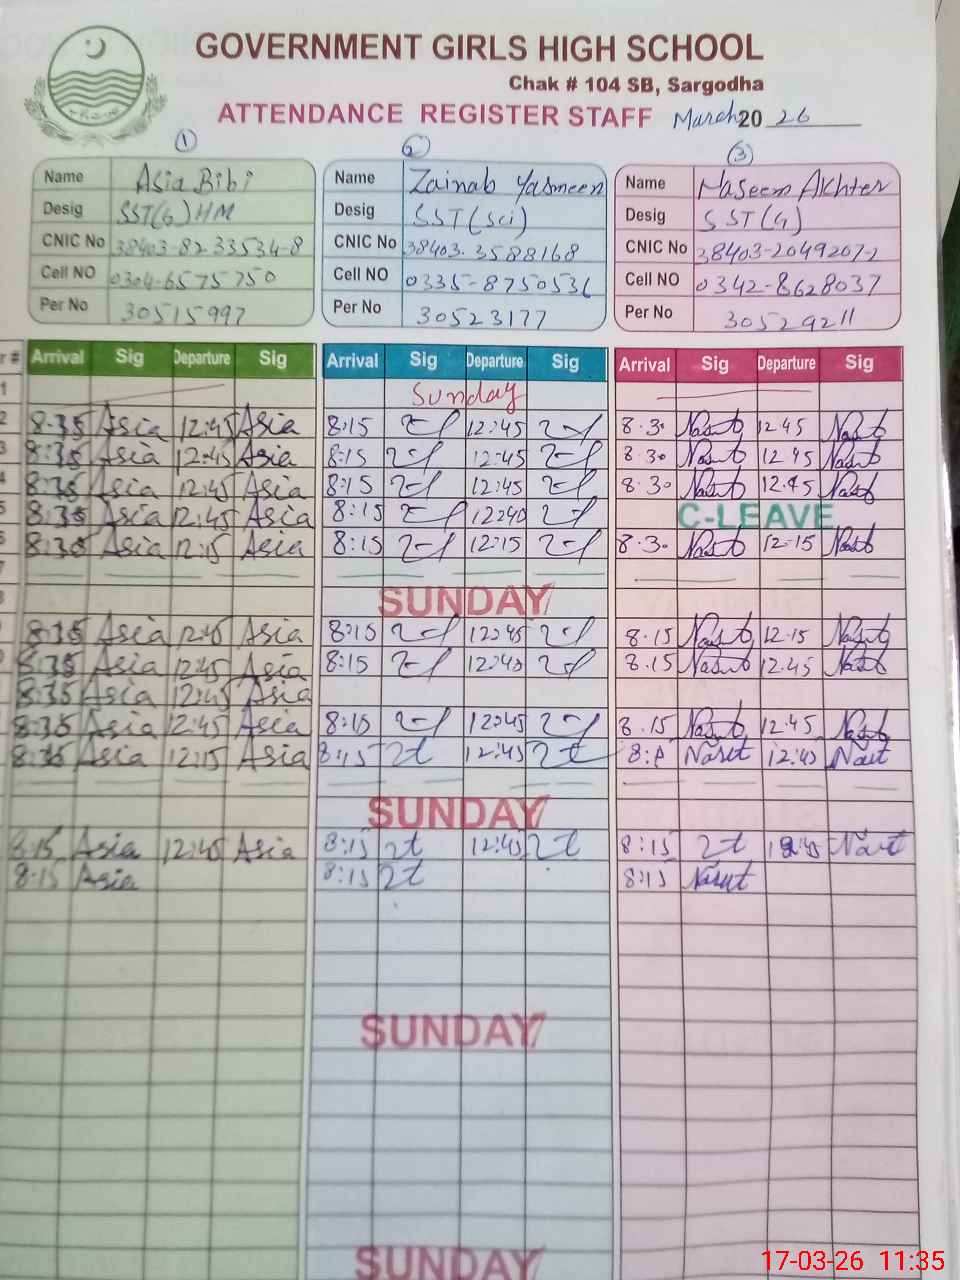 GOVERNMENT GIRLS HIGH SCHOOL
Chak # 104 SB, Sargodha
ATTENDANCE REGISTER STAFF March 20 26
1 2 3
Name Asia Bibi Name Zainab Yasmeen Name Naseem Akhter
Desig SST(G) HM Desig SST(Sci) Desig SST(G)
CNIC No 38403-8233534-8 CNIC No 38403.3588168 CNIC No 38403-2049207-2
Cell NO 0304-6575750 Cell NO 0335-8750536 Cell NO 0342-8628037
Per No 30515997 Per No 30523177 Per No 30529211
r # Arrival Sig Departure Sig Arrival Sig Departure Sig Arrival Sig Departure Sig
1 Sunday
2 8:35 Asia 12:45 Asia 8:15 12:45 8.30 12.45
3 8:35 Asia 12:45 Asia 8:15 12:45 8.30 12.45
4 8:35 Asia 12:45 Asia 8:15 12:45 8.30 12.45
5 8:35 Asia 12:45 Asia 8:15 C-LEAVE
6 8:35 Asia 12:15 Asia 8:15 12:15 8.30 12-15
7
8 SUNDAY
8:35 Asia 12:45 Asia 8:15 12:45 8.15 12.15
8:35 Asia 12:45 Asia 8:15 8.15 12.45
8:35 Asia 12:45 Asia
8:35 Asia 12:45 Asia 8:15 12:45 8.15 12.45
8:35 Asia 12:15 Asia 8:15 12:45 12:45
SUNDAY
8:15 Asia 12:45 Asia 8:15 12:45 8:15 12:45
8:15 Asia 8:15 8:15
SUNDAY
SUNDAY
17-03-26 11:35